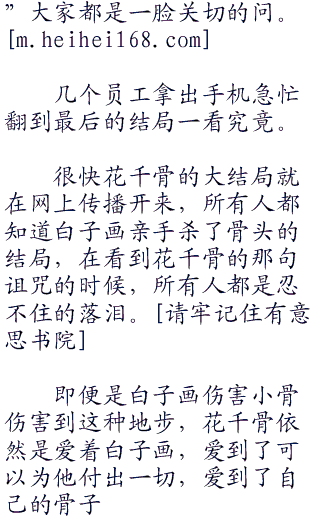 ”大家都是一脸关切的问。
[m.heihei168.com]
几个员工拿出手机急忙
翻到最后的结局一看究竟。
很快花千骨的大结局就
在网上传播开来，所有人都
知道白子画亲手杀了骨头的
结局，在看到花千骨的那句
诅咒的时候，所有人都是忍
不住的落泪。[请牢记住有意
思书院]
即便是白子画伤害小骨
伤害到这种地步，花千骨依
然是爱着白子画，爱到了可
以为他付出一切，爱到了自
己的骨子